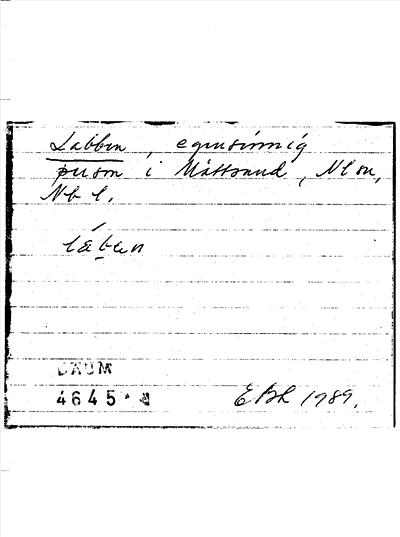 Labben, egensinnig
person i Måttsund, Nlu,
Nb l.
láben
DAUM
4645
EBL 1989.